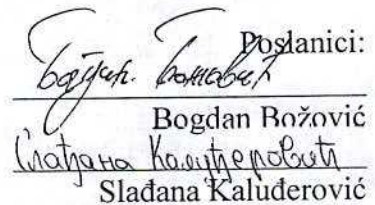 Poslanici:
Bogdan Božović
Слађана Калуђеровић
Slađana Kaluđerović